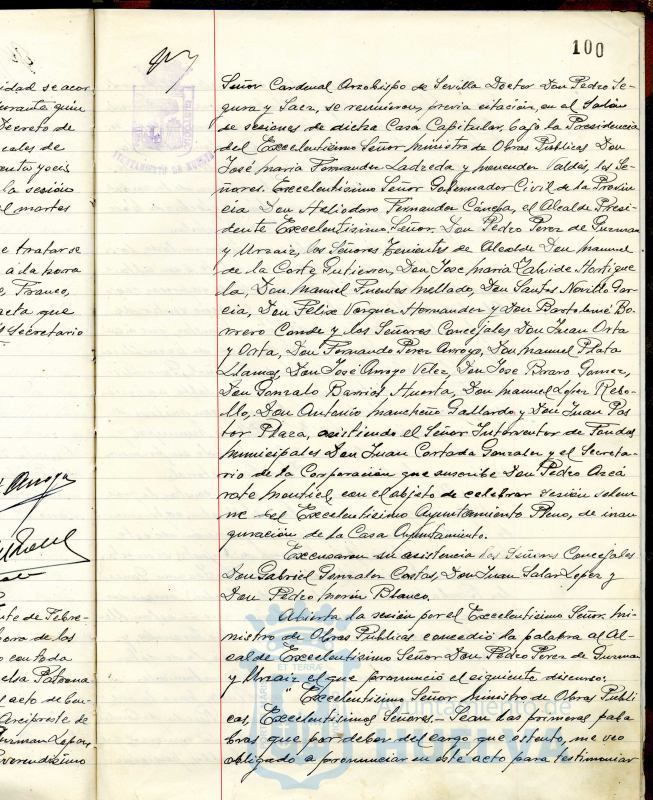 100
idad se acor
Decreto de
cales de
la sesión
el martes
e tratarse
á la hora
Franco,
acta que
Secretario
Arroyo
nte de Febre-
hora de los
Patrona
acto de ben-
Arcipreste de
Guzman Lopez,
Reverendisimo
Señor Cardenal Arzobispo de Sevilla Doctor Don Pedro Se-
gura y Saez, se reunieron, previa citación, en el Salón
de sesiones de dicha Casa Capitular, bajo la Presidencia
del Excelentisimo Señor Ministro de Obras Publicas Don
José Maria Fernandez Ladreda y Menendez Valdés, los Se-
ñores. Excelentisimo Señor Gobernador Civil de la Provin
cia Don Heliodoro Fernandez Cánepa, el Alcalde Presi-
dente Excelentisimo Señor Don Pedro Perez de Guzman
y Urzaiz, los Señores Tenientes de Alcalde Don Manuel
de la Corte Gutierrez, Don José Maria Zalvide Hortigue
la, Don Manuel Fuentes Mellado, Don Santos Novillo Gar-
cia, Don Felix Vazquez Hernandez y Don Bartolomé Bo-
rrero Conde y los Señores Concejales Don Juan Orta
y Orta, Don Fernando Perez Arroyo, Don Manuel Plata
Llamas, Don José Arroyo Velez, Don José Bravo Gomez,
Don Gonzalo Barrios Huerta, Don Manuel Lopez Rebo-
llo, Don Antonio Mancheño Gallardo y Don Juan Pas
tor Plaza, asistiendo el Señor Interventor de Fondos
municipales Don Juan Cortada Gonzalez y el Secreta-
rio de la Corporación que suscribe Don Pedro Azcá
rate Montiel, con el objeto de celebrar sesión solem
ne el Excelentisimo Ayuntamiento Pleno, de inau
guración de la Casa Ayuntamiento.
Excusaron su asistencia los Señores Concejales
Don Gabriel Gonzalez Costas, Don Juan Salas Lopez y
Don Pedro Morón Blanco.
Abierta la sesión por el Excelentisimo Señor Mi-
nistro de Obras Publicas concedió la palabra al Al-
calde Excelentisimo Señor Don Pedro Perez de Guzman
y Urzaiz el que pronunció el siguiente discurso:
"Excelentisimo Señor Ministro de Obras Publi
cas, Excelentisimos Señores.- Sean las primeras pala
bras que por deber del cargo que ostento, me veo
obligado a pronunciar en este acto para testimoniar
ET TERRAE
Ayuntamiento de
HUELVA
AYUNTAMIENTO DE HUELVA